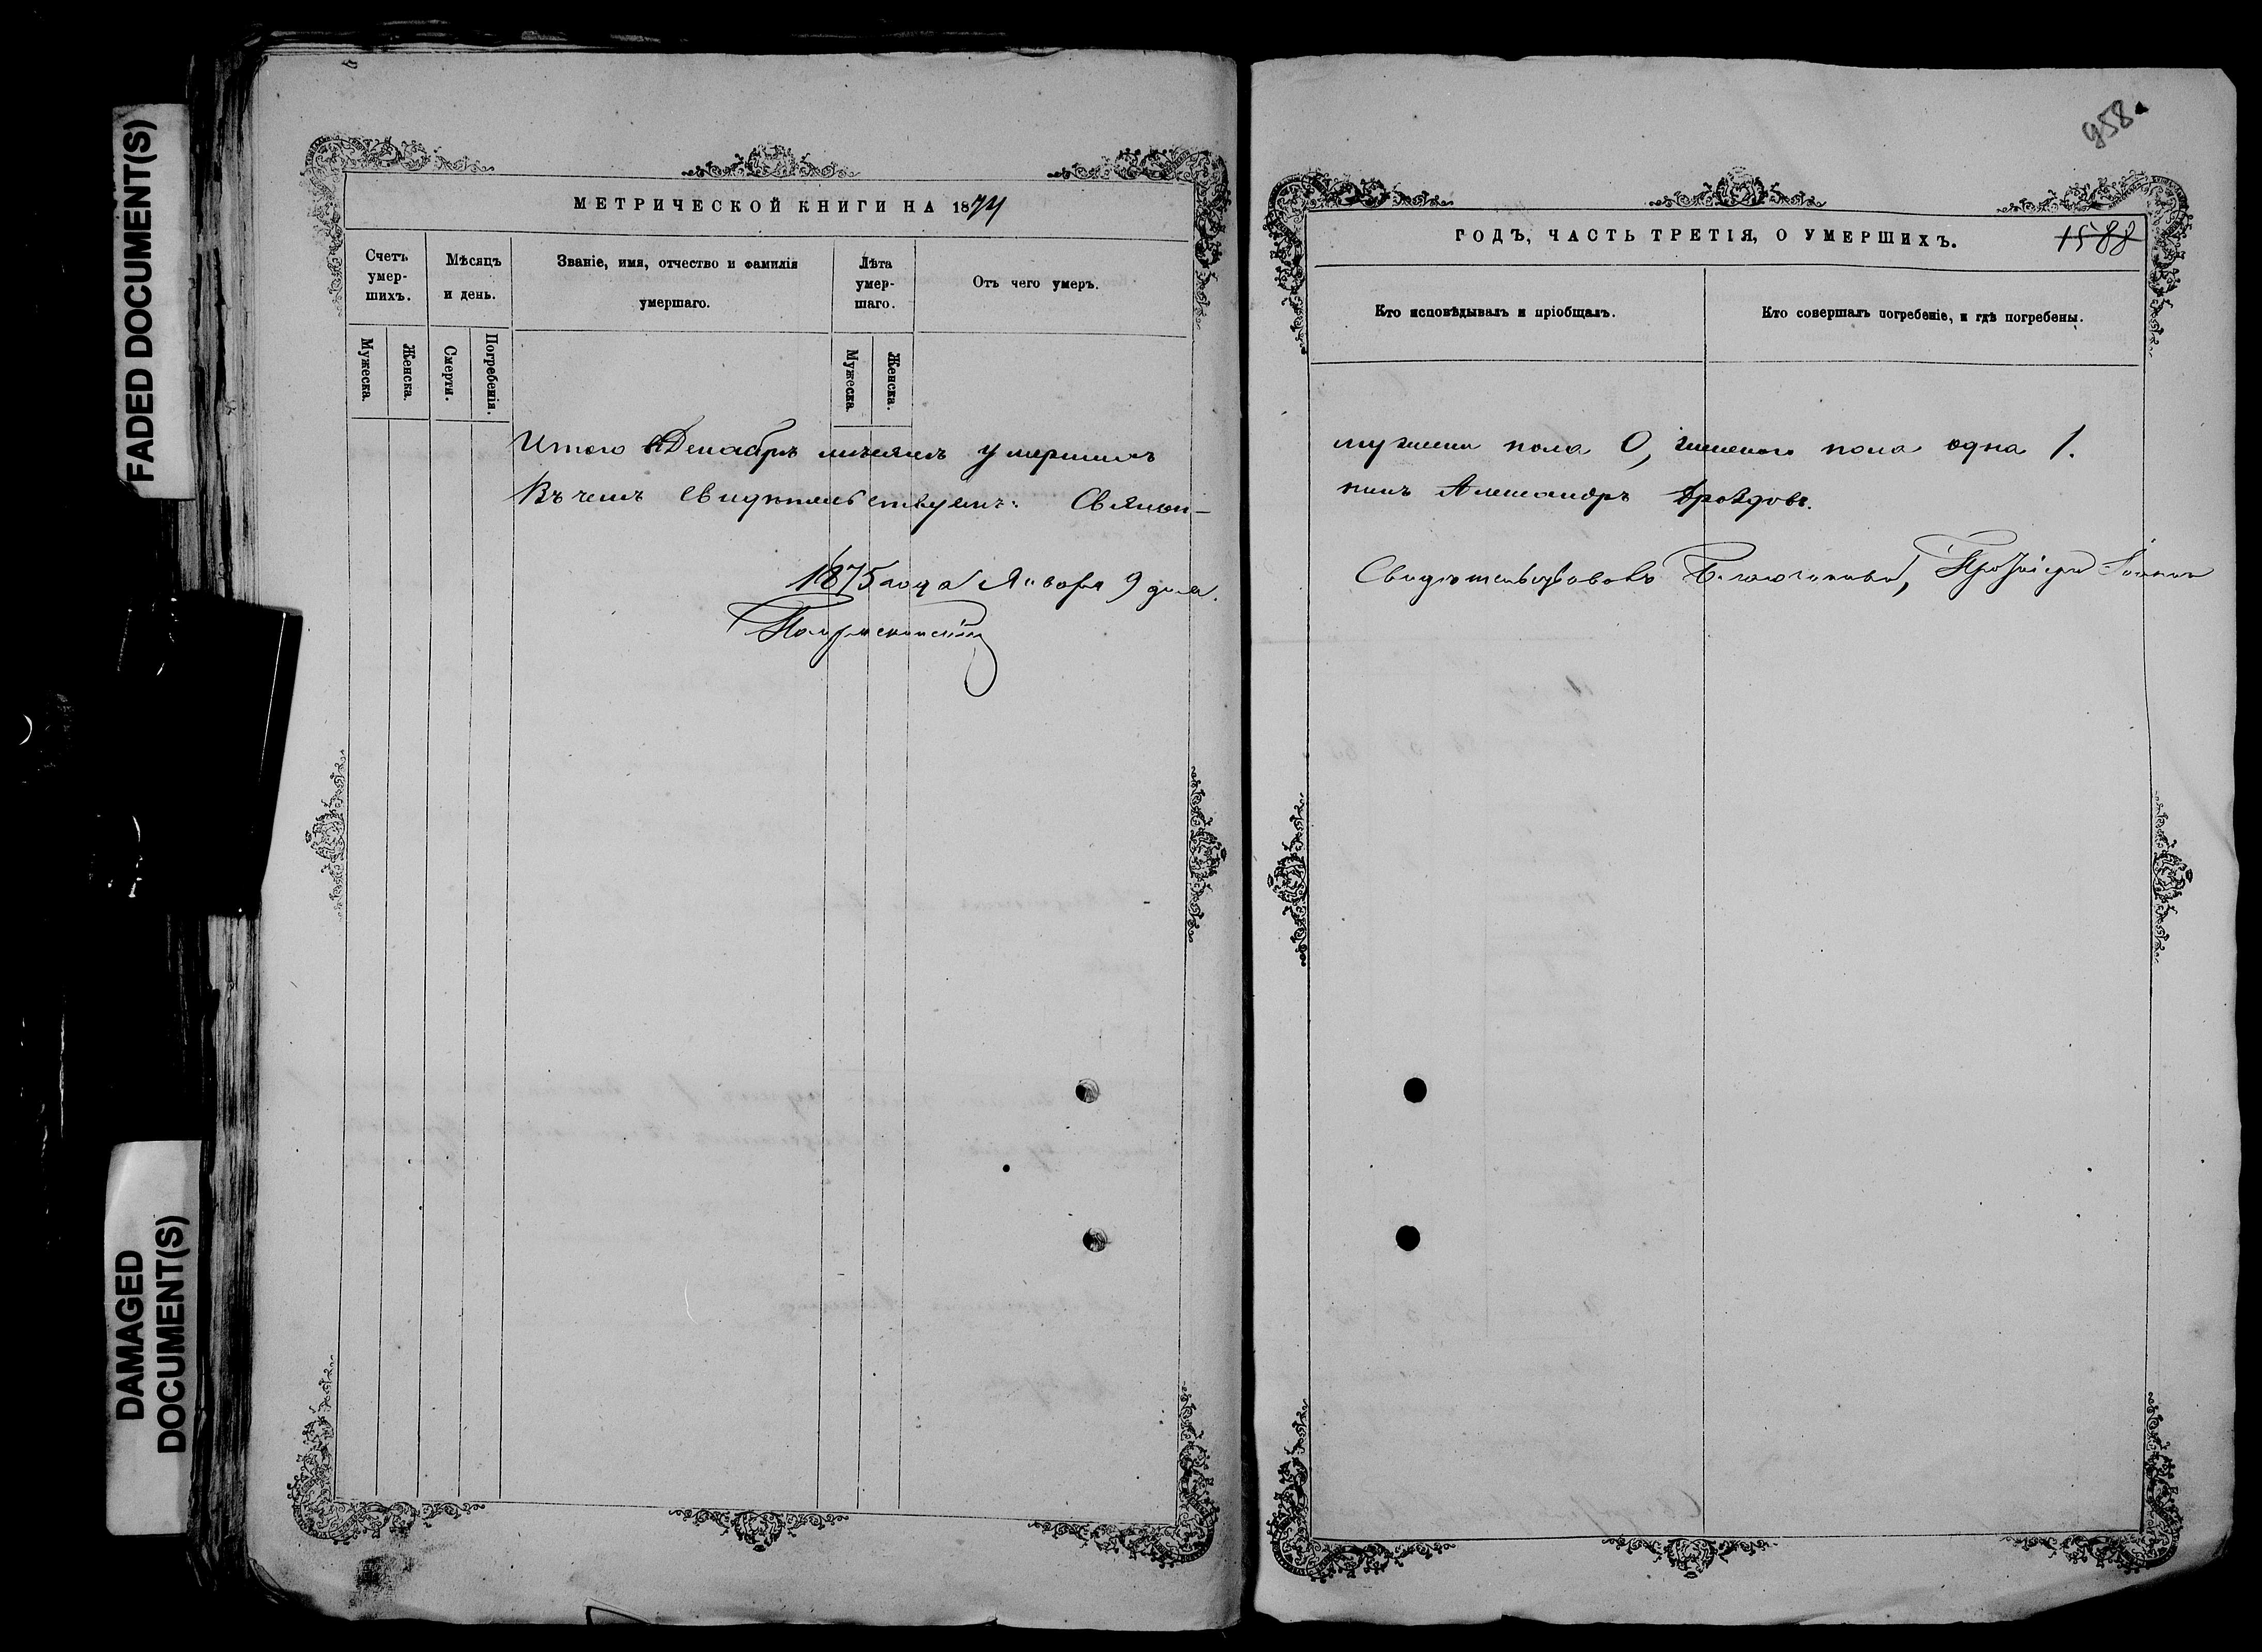 FADED DOCUMENT(S)
DAMAGED
DOCUMENT(S)
МЕТРИЧЕСКОЙ КНИГИ НА 1874
Счетъ
умер-
шихъ.
Мужеска.
Женска.
Мѣсяцъ
и день.
Смерти.
Погребенія.
Званіе, имя, отчество и фамилія
умершаго.
Лѣта
умер-
шаго.
Мужеска.
Женска.
Отъ чего умеръ.
Итого въ Декабрѣ мѣсяцѣ умершихъ
Въ чемъ свидѣтельствуемъ: Священ-
1875 года Января 9 дня.
958
ГОДЪ, ЧАСТЬ ТРЕТІЯ, О УМЕРШИХЪ.
1588
Кто исповѣдывалъ и пріобщалъ.
Кто совершалъ погребеніе, и гдѣ погребены.
мужеска пола 0, женскаго пола одна 1.
никъ Александръ
Свидѣтельствовалъ Благочинный, Протоіерей Іоаннъ